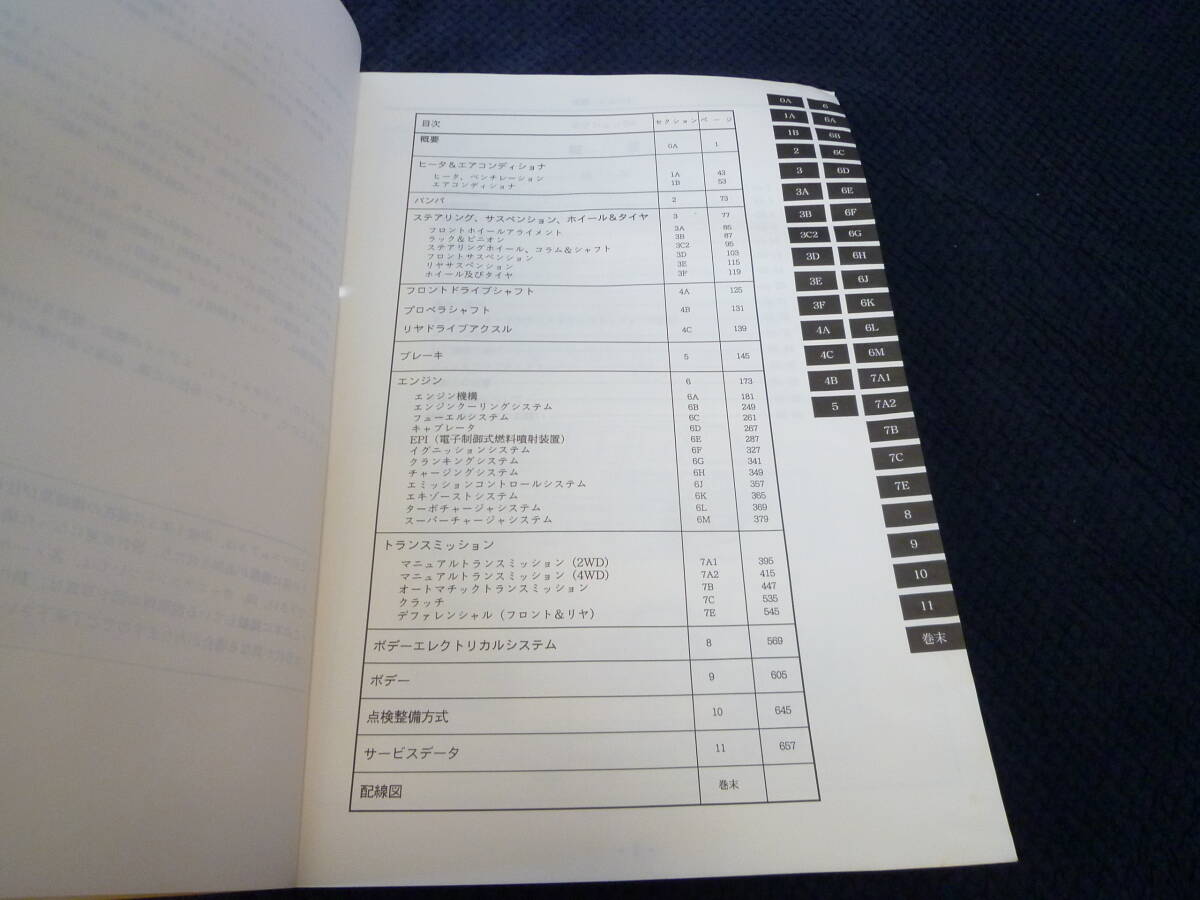 目次 セクション ページ
概要 0A 1
ヒータ&エアコンディショナ
ヒータ、ベンチレーション 1A 43
エアコンディショナ 1B 53
バンパ 2 73
ステアリング、サスペンション、ホイール&タイヤ 3 77
フロントホイールアライメント 3A 85
ラック&ピニオン 3B 87
ステアリングホイール、コラム&シャフト 3C2 95
フロントサスペンション 3D 103
リヤサスペンション 3E 115
ホイール及びタイヤ 3F 119
フロントドライブシャフト 4A 125
プロペラシャフト 4B 131
リヤドライブアクスル 4C 139
ブレーキ 5 145
エンジン 6 173
エンジン機構 6A 181
エンジンクーリングシステム 6B 249
フューエルシステム 6C 261
キャブレータ 6D 267
EPI(電子制御式燃料噴射装置) 6E 287
イグニッションシステム 6F 327
クランキングシステム 6G 341
チャージングシステム 6H 349
エミッションコントロールシステム 6J 357
エキゾーストシステム 6K 365
ターボチャージャシステム 6L 369
スーパーチャージャシステム 6M 379
トランスミッション
マニュアルトランスミッション(2WD) 7A1 395
マニュアルトランスミッション(4WD) 7A2 415
オートマチックトランスミッション 7B 447
クラッチ 7C 535
デファレンシャル(フロント&リヤ) 7E 545
ボデーエレクトリカルシステム 8 569
ボデー 9 605
点検整備方式 10 645
サービスデータ 11 657
配線図 巻末
0A 6
1A 6A
1B 6B
2 6C
3 6D
3A 6E
3B 6F
3C2 6G
3D 6H
3E 6J
3F 6K
4A 6L
4C 6M
4B 7A1
5 7A2
7B
7C
7E
8
9
10
11
巻末